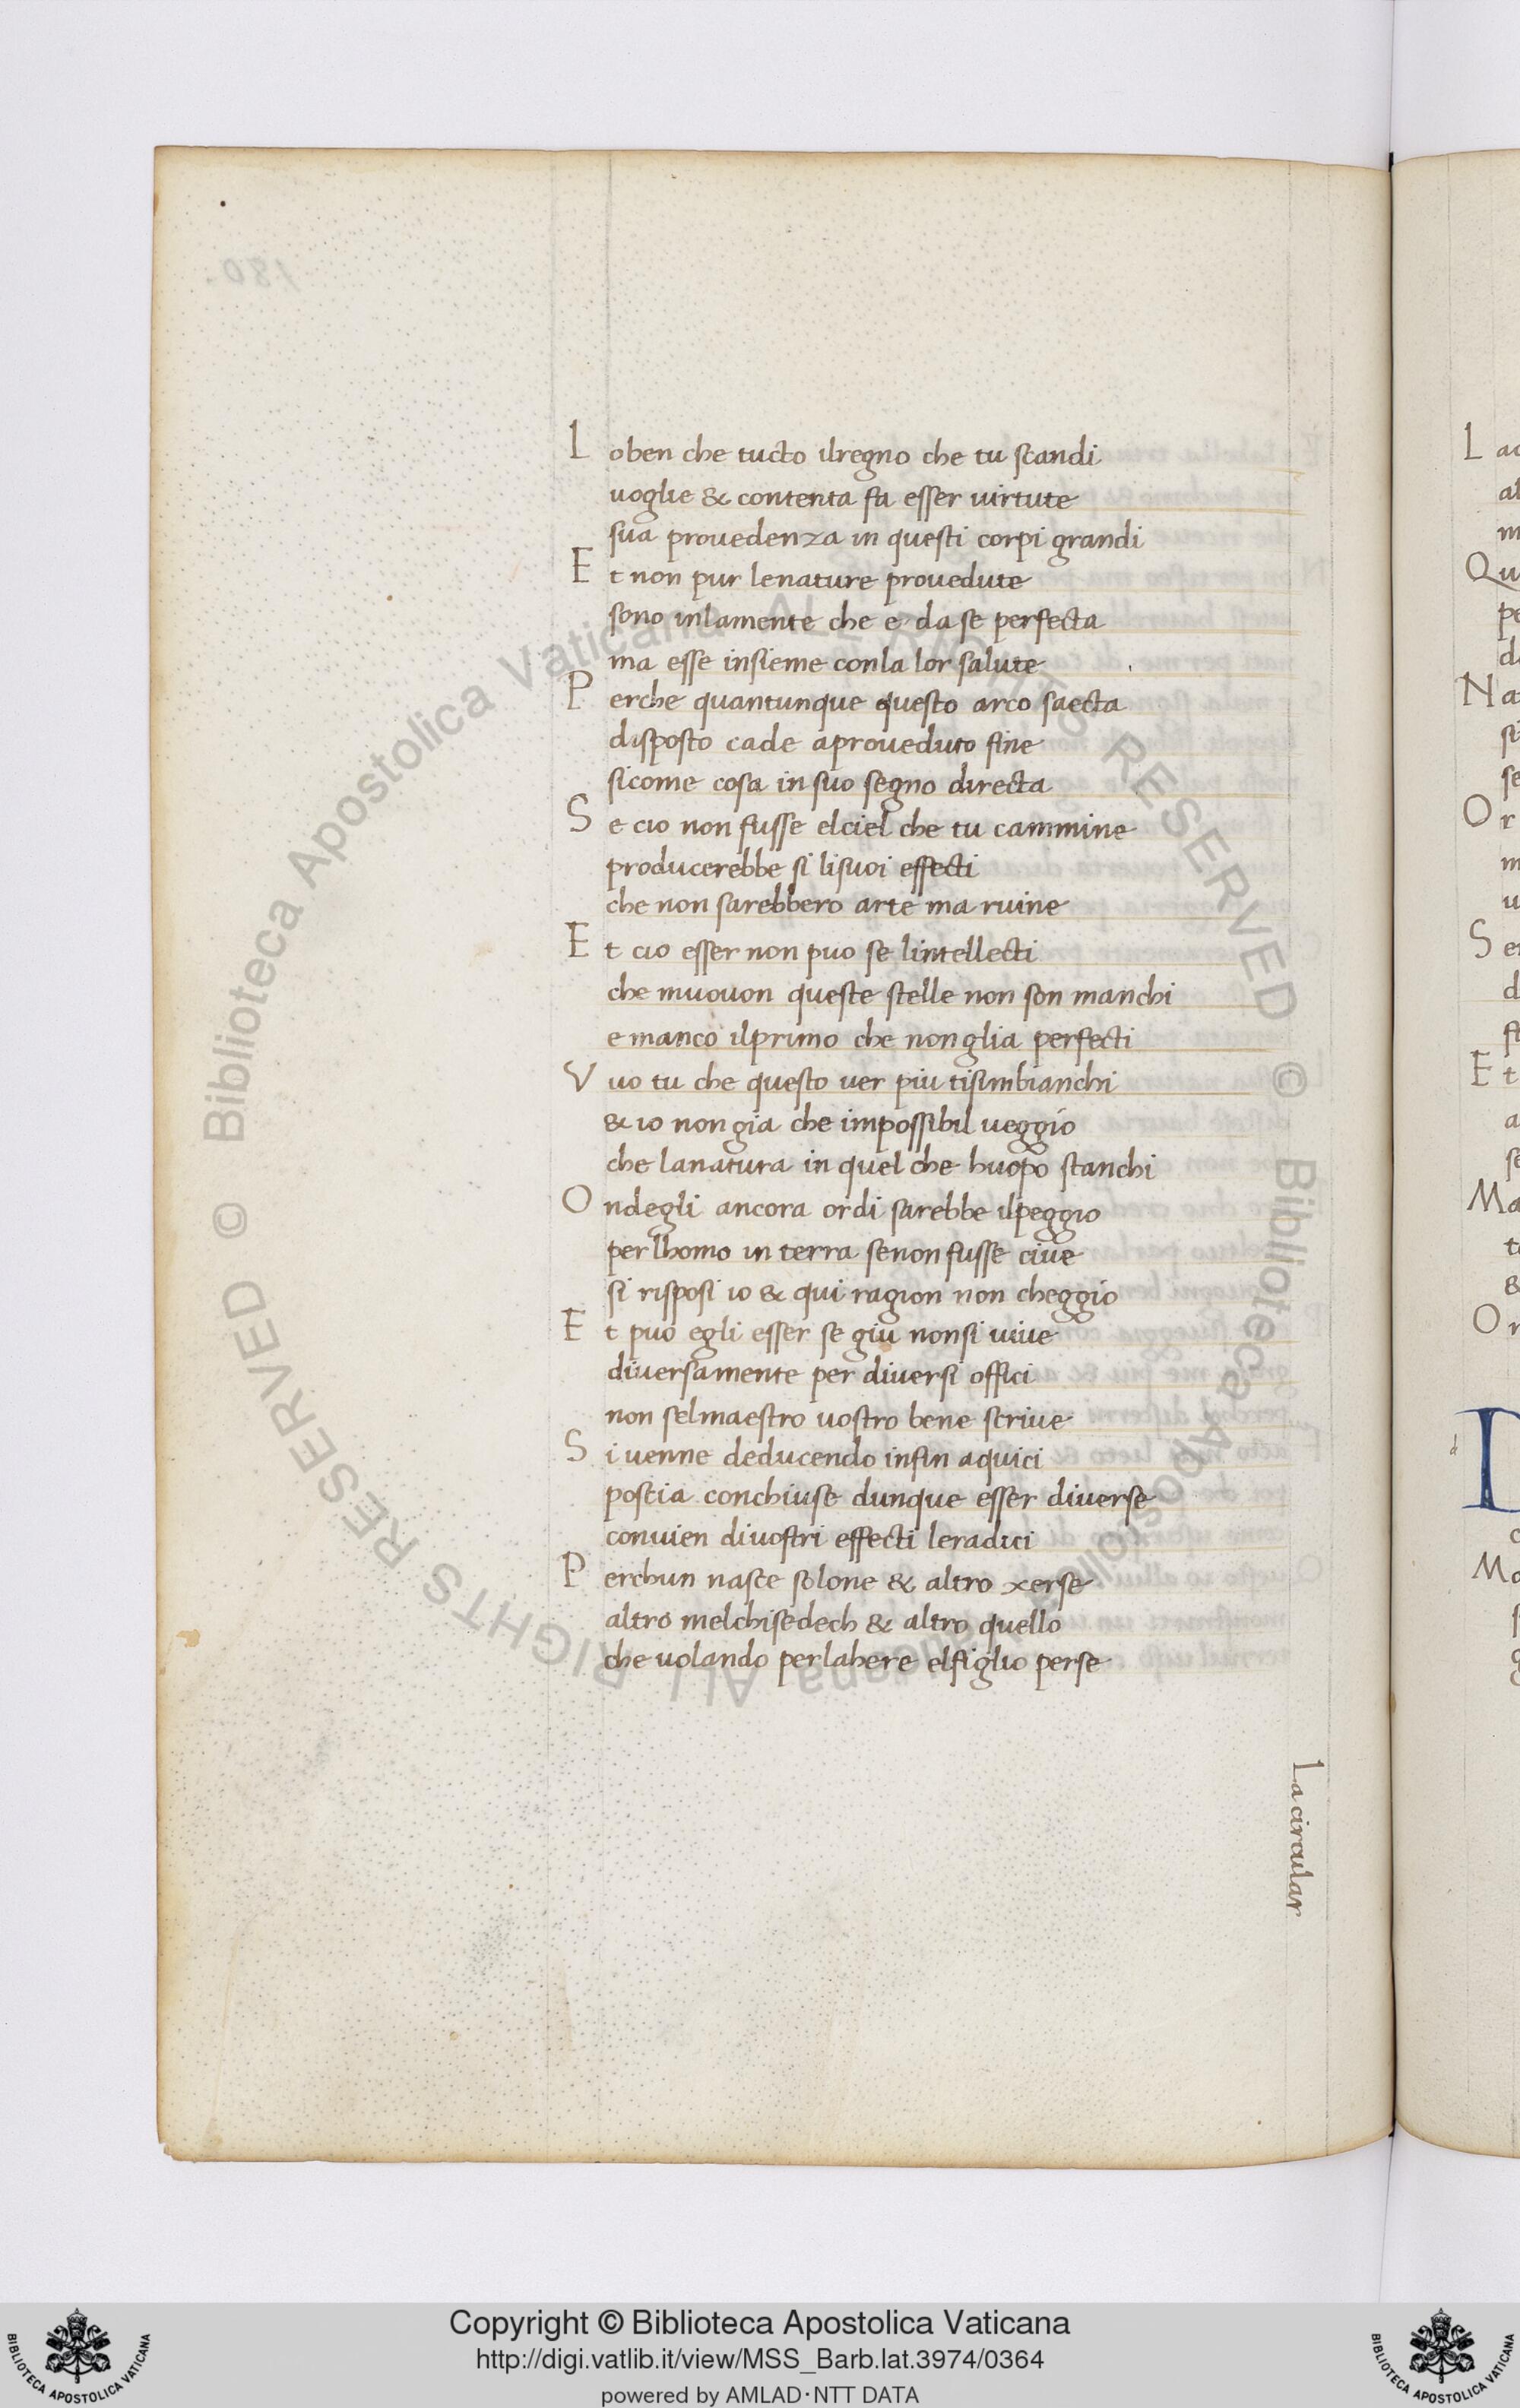 L oben che tucto ilregno che tu scandi
uoglie & contenta fa esser uirtute
sua prouedenza in questi corpi grandi
E t non pur lenature prouedute
sono inlamente che e da se perfecta
ma esse insieme conla lor salute
P erche quantunque questo arco saecta
disposto cade aproueduto fine
sicome cosa in suo segno directa
S e cio non fusse elciel che tu cammine
producerebbe si lisuoi effecti
che non sarebbero arte ma ruine
E t cio esser non puo se lintellecti
che muouon queste stelle non son manchi
e manco ilprimo che non glia perfecti
V uo tu che questo uer piu tisimbianchi
& io non gia che impossibil ueggio
che lanatura in quel che huopo stanchi
O ndegli ancora or di sarebbe ilpeggio
per lhomo in terra senon fusse ciue
si risposi io & qui ragion non cheggio
E t puo egli esser se giu nonsi uiue
diuersamente per diuersi offici
non selmaestro uostro bene scriue
S i uenne deducendo infin aquici
poscia conchiuse dunque esser diuerse
conuien diuostri effecti leradici
P erchun nasce solone & altro xerse
altro melchisedech & altro quello
che uolando perlahere elfiglio perse
La circular
180
© Biblioteca Apostolica Vaticana ALL RIGHTS RESERVED © Biblioteca Apostolica Vaticana ALL RIGHTS RESERVED
L
al
m
Qu
pe
N
O r
S
E t
Ma
O
D
Ma
Copyright © Biblioteca Apostolica Vaticana
http://digi.vatlib.it/view/MSS_Barb.lat.3974/0364
powered by AMLAD·NTT DATA
BIBLIOTECA APOSTOLICA VATICANA
BIBLIOTECA APOSTOLICA VATICANA